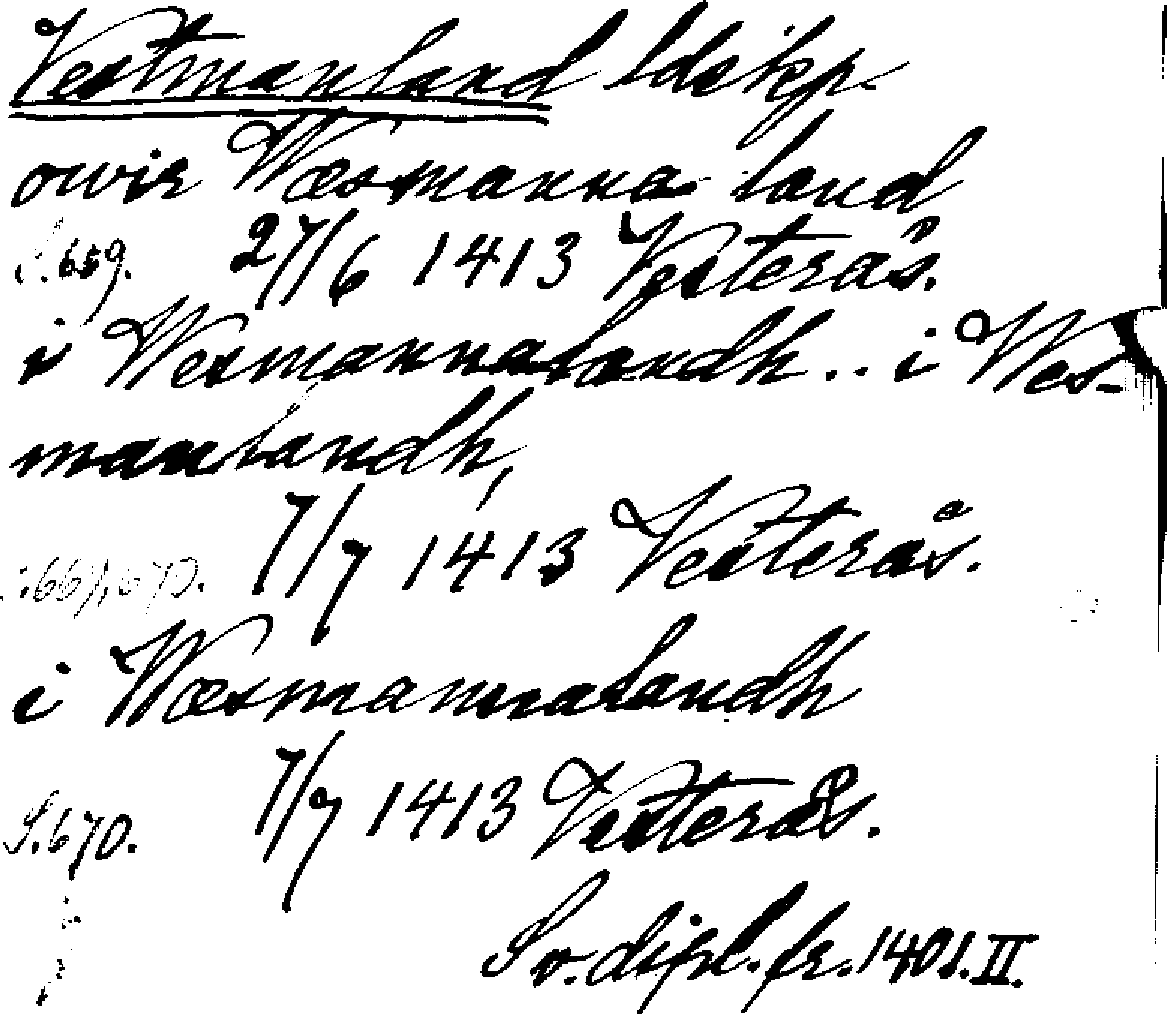 Vestmanland ldskp.
owir Wæsmanna land
S.659. 27/6 1413 Vesterås.
i Wesmannalandh .. i Wes-
manlandh,
:669,670. 7/7 1413 Vesterås.
i Wæsmannalandh
S.670. 7/7 1413 Vesterås.
Sv. dipl. fr. 1401. II.